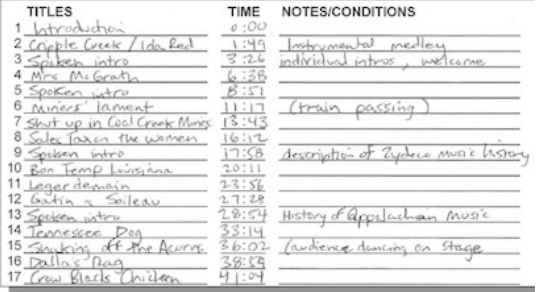 TITLES TIME NOTES/CONDITIONS
1 Introduction 0:00
2 Cripple Creek / Ida Red 1:49 Instrumental medley
3 Spoken intro 3:26 individual intros, welcome
4 Mrs McGrath 6:38
5 Spoken intro 8:51
6 Miners' lament 11:17 (train passing)
7 Shut up in Coal Creek Mines 13:43
8 Sales Tax on the Women 16:12
9 Spoken intro 17:58 description of Zydeco music history
10 Bon Temp Louisiana 20:11
11 Legerdemain 23:56
12 Gatin & Soileau 27:28
13 Spoken intro 28:54 History of Appalachian Music
14 Tennessee Dog 33:14
15 Shaking off the Acorns 36:02 (audience dancing on stage
16 Dallas Rag 38:59
17 Crow Black Chicken 41:04